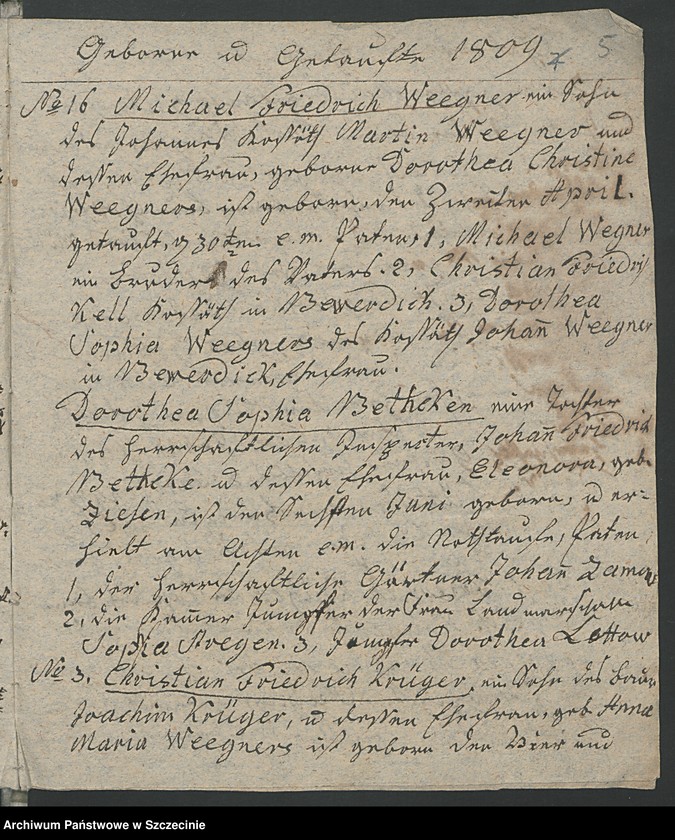 Geborne u Getaufte 1809 5
No 16 Michael Friedrich Weegner ein Sohn
des Johannes Kossäth Martin Weegner und
dessen Ehefrau, geborne Dorothea Christine
Weegners, ist geboren, den Zweiten April.
getauft, d 30ten e.m. Paten, 1, Michael Wegner
ein bruder des Vaters. 2, Christian Friedrich
Kell Kossäth in Bewerdich. 3, Dorothea
Sophia Weegners des Kossäth Johan̄ Weegner
in Bewerdick, Ehefrau.
Dorothea Sophia Bethcken eine Tochter
des herrschaftlichen Inspecter, Johan̄ Friedrich
Bethcke. u dessen Ehefrau, Eleonora, geb.
Ziesen, ist den Sechsten Juni geboren, u er=
hielt am Achten e.m. die Nothtaufe, Paten,
1, der herrschaftliche Gärtner Johan̄
2, die Kam̄er Jumpfer der Frau Landmarschall
Sophia Stregen. 3, Jumpfer Dorothea Lottow
No 3. Christian Friedrich Krüger, ein Sohn des baur
Joachim Krüger, u dessen Ehefrau, geb Anna
Maria Weegners ist geboren den Vier und
Archiwum Państwowe w Szczecinie